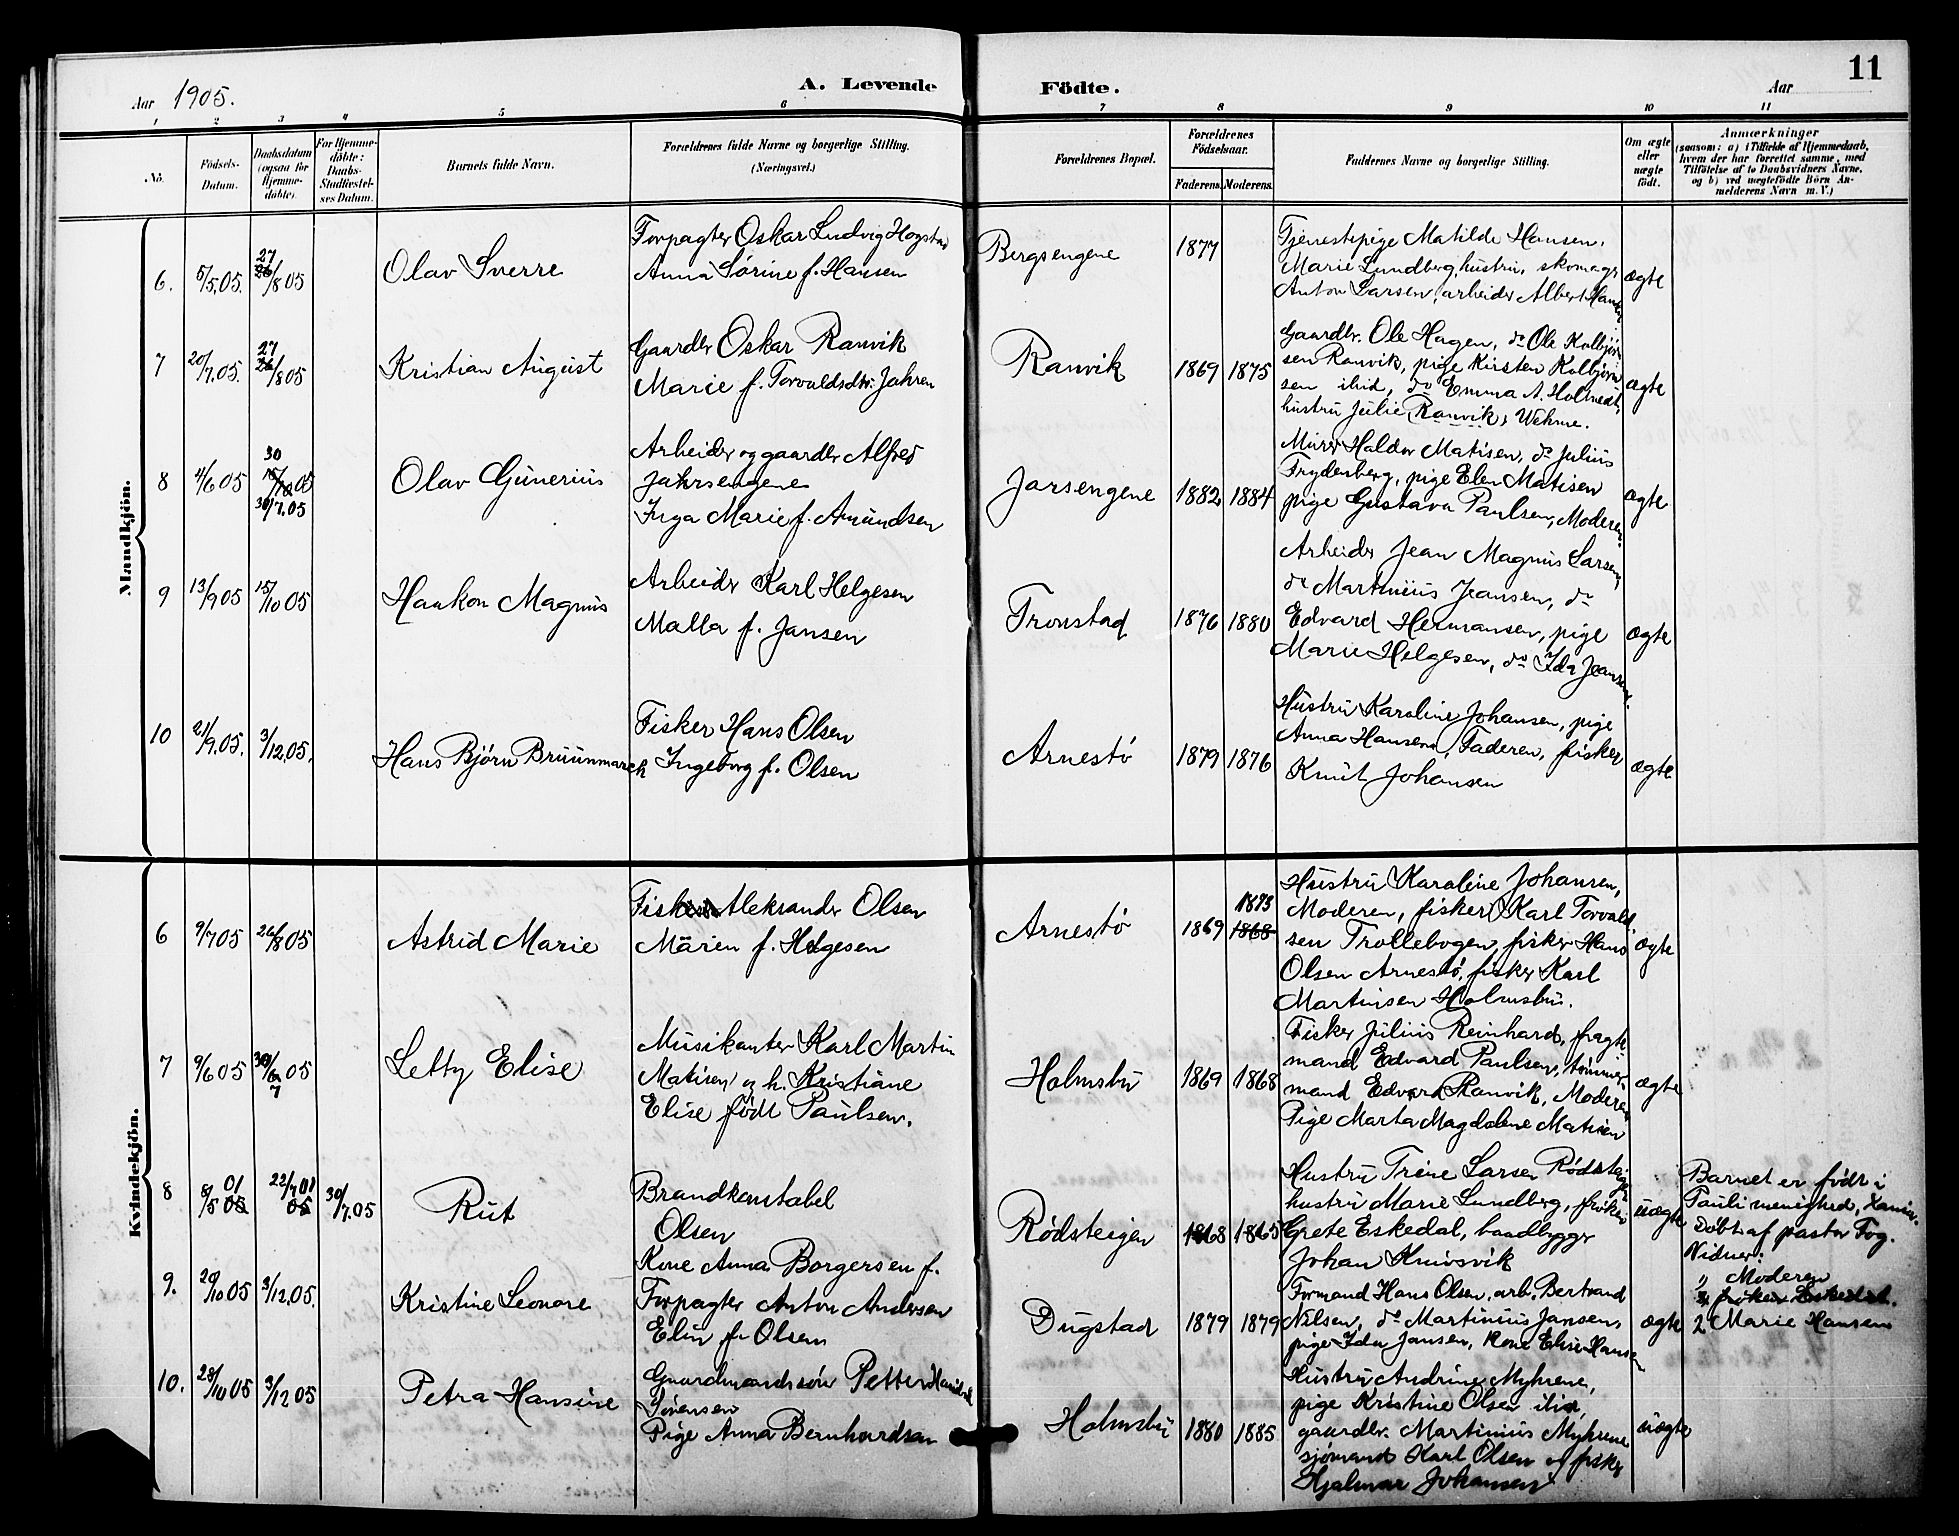 11
Aar 1905.
A. Levende Födte.
Aar
1 2 3 4 5 6 7 8 9 10 11
No.
Födsels-Datum.
Daabsdatum (ogsaa for Hjemme-döbte).
For Hjemme-döbte: Daabs-Stadfæstel-ses Datum.
Barnets fulde Navn.
Forældrenes fulde Navne og borgerlige Stilling.
(Næringsvei.)
Forældrenes Bopæl.
Forældrenes Födselsaar.
Faderens. Moderens.
Faddernes Navne og borgerlige Stilling.
Om ægte eller uægte födt.
Anmærkninger
(saasom: a) i Tilfælde af Hjemmedaab,
hvem der har forrettet samme, med
Tilföielse af to Daabsvidners Navne,
og b) ved uægtefödte Börn An-
melderens Navn m. V.)
Mandkjön.
6. 5/5.05. 27/8 05
Olav Sverre
Forpagter Oskar Ludvig Hogstad
Anna Sørine f. Hansen
Bergsengene
1877
Tjenestepige Matilde Hansen,
Marie Lundberg, hustru, skomagr
Anton Larsen, arbeider Albert Hansen
ægte
7 20/7.05. 27/8 05
Kristian August
Gaardbr Oskar Ranvik
Marie f. Torvaldsdtr. Jahren
Ranvik
1869 1875
Gaardbr. Ole Hagen, do Ole Kolbjørn
sen Ranvik, pige Kirsten Kolbjørn
sen ibid, do Emma A. Holtnedt,
hustru Julie Ranvik, Wehme.
ægte
8 4/6 05 30
15/10 05
30/7.05
Olav Gunerius
Arbeider og gaardbr Alfred
Jahrsengene
Inga Marie f. Amundsen
Jarsengene
1882 1884
Murer Haldor Matisen, do Julius
Frydenberg, pige Elen Matisen
pige Gustava Paulsen, Moderen.
ægte
9 13/9 05 15/10 05
Haakon Magnus
Arbeider Karl Helgesen
Malla f. Jansen
Tronstad
1876 1880
Arbeider Jean Magnus Larsen,
do Martinius Jeansen, do
Edvard Hermansen, pige
Marie Helgesen, do Ida Jeansen.
ægte
10 21/9.05. 3/12.05.
Hans Bjørn Bruunmarck
Fisker Hans Olsen
Ingeborg f. Olsen
Arnestø
1879 1876
Hustru Karoline Johansen, pige
Anna Hansen, Faderen, fisker
Knut Johansen
ægte
Kvindekjön.
6 9/7 05 26/8 05
Astrid Marie
Fisker Aleksander Olsen
Mären f. Helgesen
Arnestø
1869 1873
1868
Hustru Karoline Johansen,
Moderen, fisker Karl Torvald
sen Trollebogen, fisker Hans
Olsen Arnestø, fisker Karl
Martinsen Holmsbu.
ægte
7 9/6 05 30/6 05
7
Letty Elise
Musikanter Karl Martin
Matisen og h. Kristiane
Elise født Paulsen.
Holmsbu
1869 1868
Fisker Julius Reinhard, fragte
mand Edvard Paulsen, tømmer
mand Edvard Ranvik, Moderen
Pige Marta Magdalene Matisen
ægte
8 8/5 01 05 22/7 01 05 30/7.05
Rut
Brandkonstabel
Olsen
Kone Anna Borgersen f.
Rødsteigen
1868 1865
Hustru Trine Larsen Rødsteigen
hustru Marie Lundberg, frøken
Grete Eskedal, baadbygger
Johan Knivsvik
uægte
Barnet er født i
Pauli menighed, Xania.
Døbt af pastor Fog.
Vidner:
1) Moderen
2) frøken Eskedal.
2 Marie Hansen
9. 20/10 05 3/12.05.
Kristine Leonore
Forpagter Anton Andersen
Elin f. Olsen
Dugstad
1879 1879
Formand Hans Olsen, arb. Bertrand
Nilsen, do Martinius Jansen,
pige Ida Jansen, Kone Elise Hansen
ægte
10. 28/10 05 3/12 05
Petra Hansine
Gaardmandssøn Petter
Sørensen
Pige Anna Bernhardsen
Holmsbu
1880 1885
Hustru Andrine Myhrene,
pige Kristine Olsen ibid,
gaardbr. Martinius Myhrene
sjømand Karl Olsen og fisker
Hjalmar Johansen
uægte